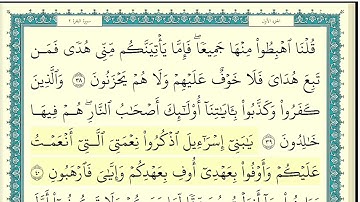 الجزء الأول سورة البقرة ٢
قُلْنَا ٱهْبِطُوا۟ مِنْهَا جَمِيعًا ۖ فَإِمَّا يَأْتِيَنَّكُم مِّنِّى هُدًى فَمَن
تَبِعَ هُدَاىَ فَلَا خَوْفٌ عَلَيْهِمْ وَلَا هُمْ يَحْزَنُونَ ٣٨ وَٱلَّذِينَ
كَفَرُوا۟ وَكَذَّبُوا۟ بِـَٔايَٰتِنَآ أُو۟لَٰٓئِكَ أَصْحَٰبُ ٱلنَّارِ ۖ هُمْ فِيهَا
خَٰلِدُونَ ٣٩ يَٰبَنِىٓ إِسْرَٰٓءِيلَ ٱذْكُرُوا۟ نِعْمَتِىَ ٱلَّتِىٓ أَنْعَمْتُ
عَلَيْكُمْ وَأَوْفُوا۟ بِعَهْدِىٓ أُوفِ بِعَهْدِكُمْ وَإِيَّٰىَ فَٱرْهَبُونِ ٤٠